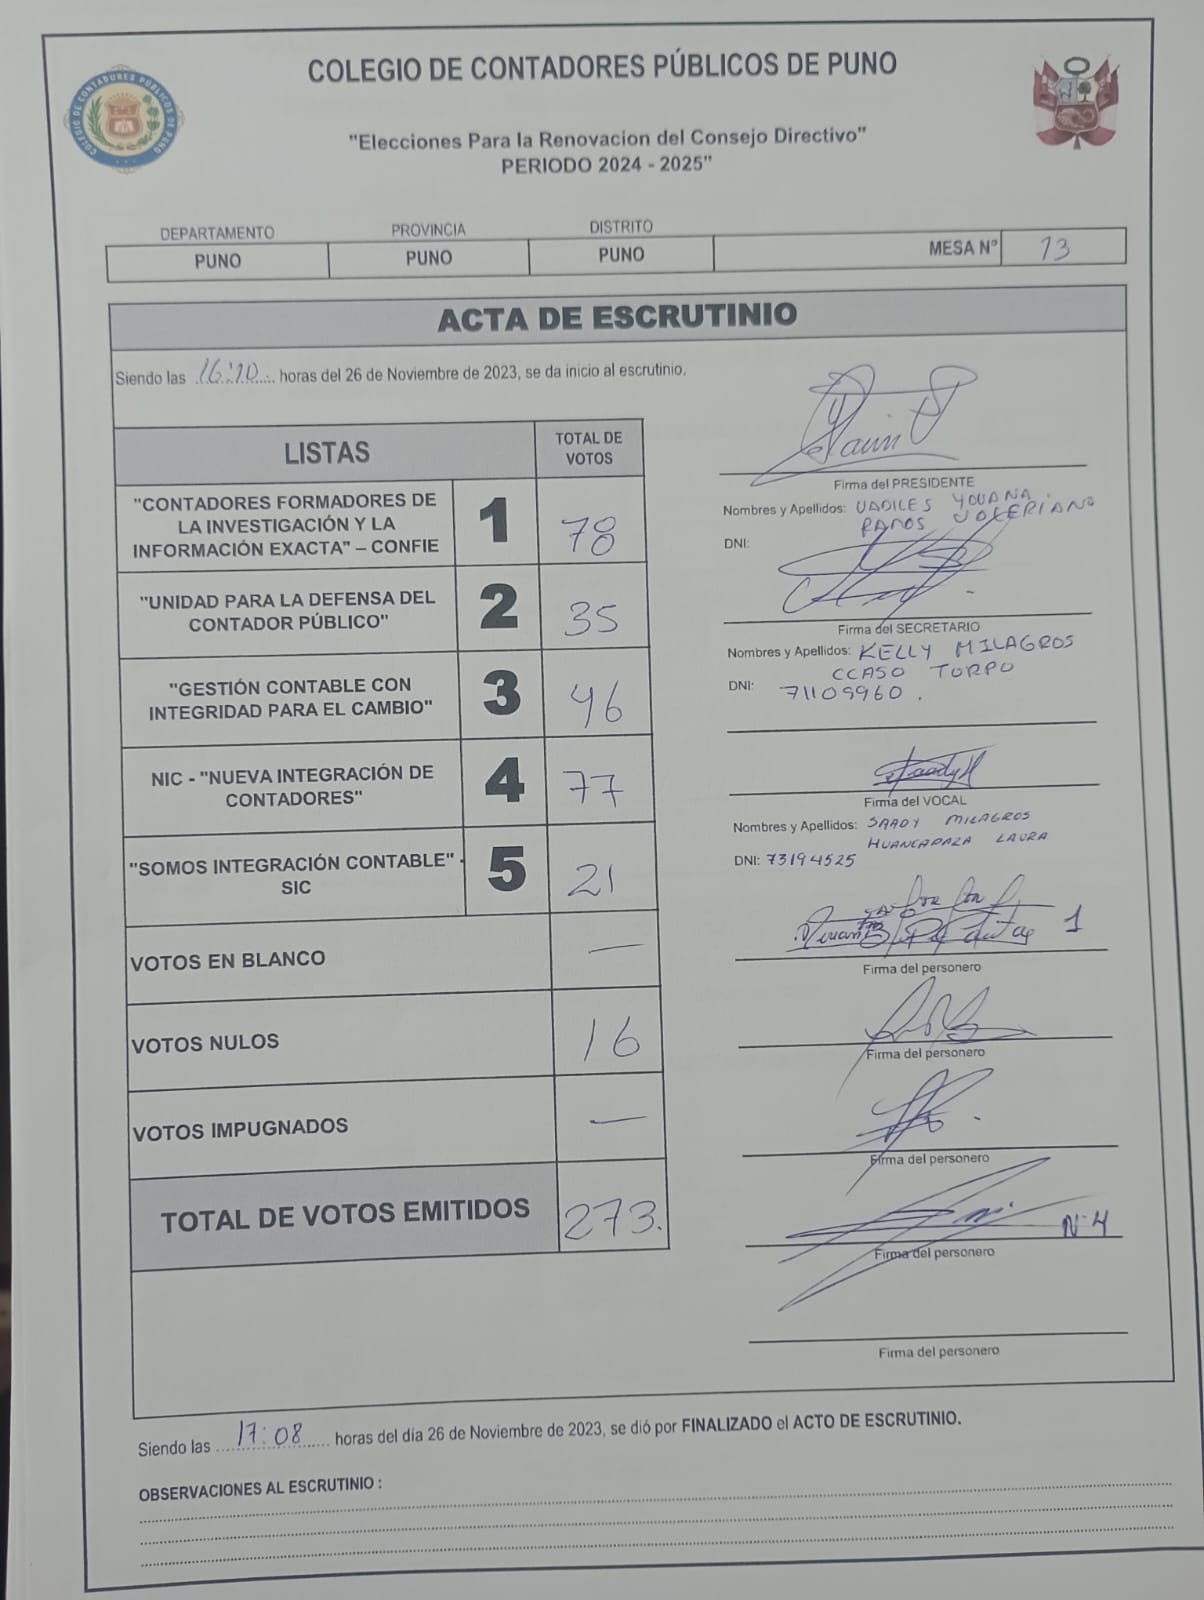 COLEGIO DE CONTADORES PÚBLICOS DE PUNO
COLEGIO DE CONTADORES PÚBLICOS DE PUNO
"Elecciones Para la Renovacion del Consejo Directivo"
PERIODO 2024 - 2025"
DEPARTAMENTO PROVINCIA DISTRITO
PUNO PUNO PUNO MESA N° 13
ACTA DE ESCRUTINIO
Siendo las 16:10 horas del 26 de Noviembre de 2023, se da inicio al escrutinio.
LISTAS TOTAL DE VOTOS
"CONTADORES FORMADORES DE
LA INVESTIGACIÓN Y LA
INFORMACIÓN EXACTA" – CONFIE 1 78
"UNIDAD PARA LA DEFENSA DEL
CONTADOR PÚBLICO" 2 35
"GESTIÓN CONTABLE CON
INTEGRIDAD PARA EL CAMBIO" 3 46
NIC - "NUEVA INTEGRACIÓN DE
CONTADORES" 4 77
"SOMOS INTEGRACIÓN CONTABLE" -
SIC 5 21
VOTOS EN BLANCO —
VOTOS NULOS 16
VOTOS IMPUGNADOS —
TOTAL DE VOTOS EMITIDOS 273.
Firma del PRESIDENTE
Nombres y Apellidos: YOUANA
RAMOS
DNI:
Firma del SECRETARIO
Nombres y Apellidos: KELLY MILAGROS
CCASO TORPO
DNI: 71109960.
Firma del VOCAL
Nombres y Apellidos: SAADY MILAGROS
HUANCAPAZA LAURA
DNI: 73194525
1
Firma del personero
Firma del personero
Firma del personero
N° 4
Firma del personero
Firma del personero
Siendo las 17:08 horas del dia 26 de Noviembre de 2023, se dió por FINALIZADO el ACTO DE ESCRUTINIO.
OBSERVACIONES AL ESCRUTINIO :